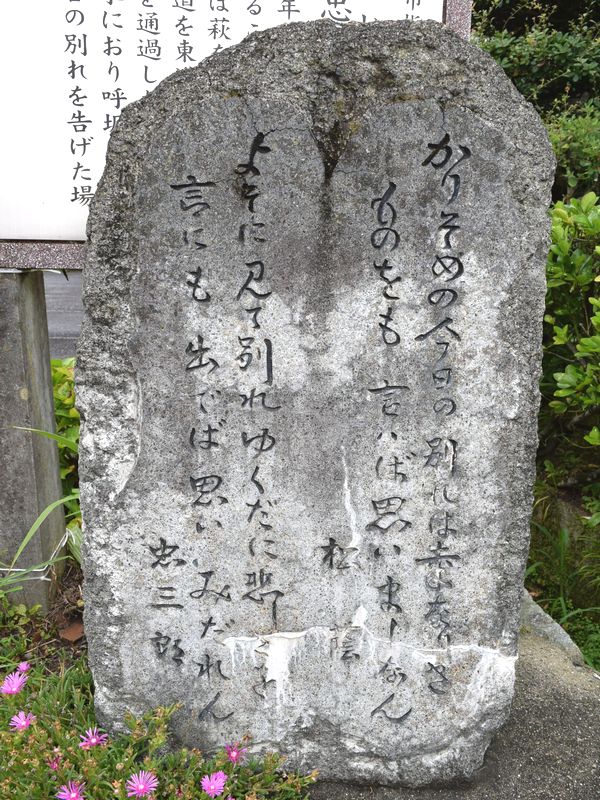 かりそめの今日の別れは幸なりき
ものをも言ハば思いましなん
松陰
よそに見て別れゆくだに悲しきを
言にも出でば思いみだれん
忠三郎
市指
忠
年
るこ
は萩を
道を東
を通過し
におり呼坂
の別れを告げた場